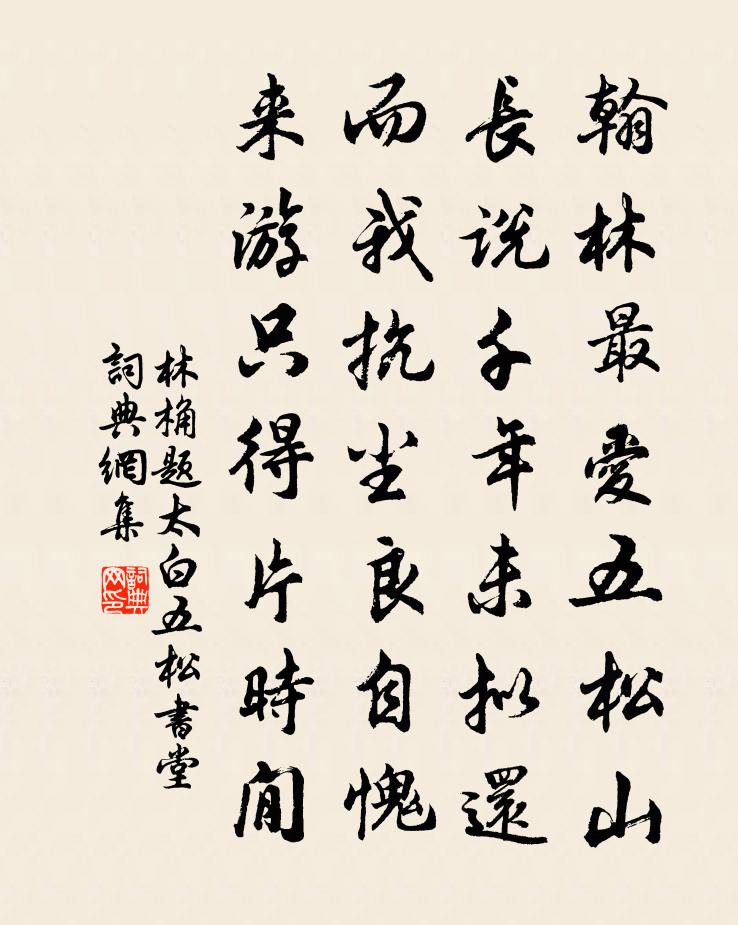 翰林最愛五松山
長説千年未拟還
而我抗尘良自愧
来游只得片時閒
林桷题太白五松書堂
詞典網集
詞典网印